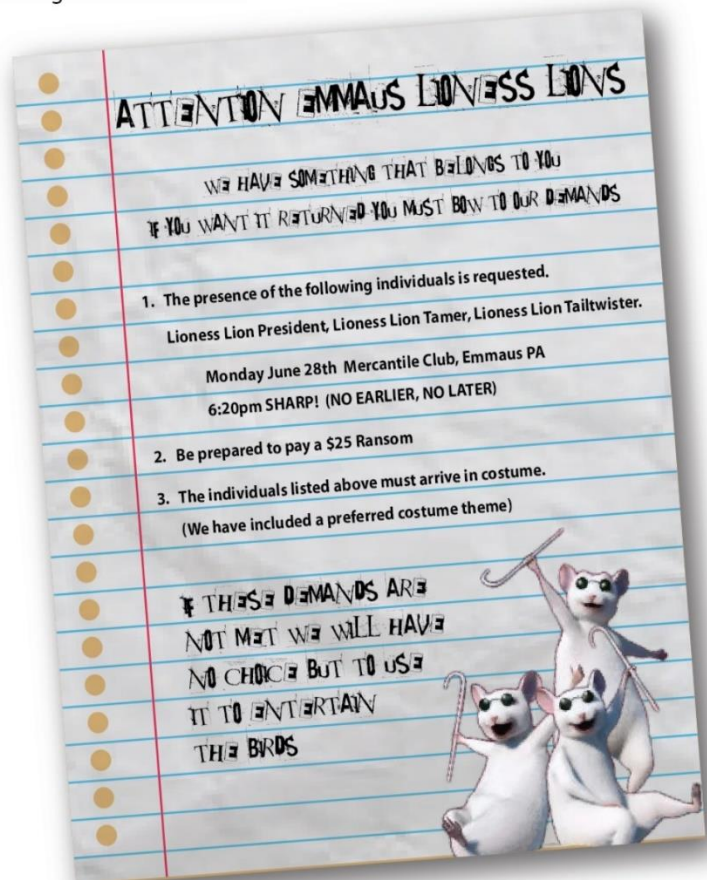 ATTENTION EMMAUS LIONESS LIONS
WE HAVE SOMETHING THAT BELONGS TO YOU
IF YOU WANT IT RETURNED YOU MUST BOW TO OUR DEMANDS
1. The presence of the following individuals is requested.
Lioness Lion President, Lioness Lion Tamer, Lioness Lion Tailtwister.
Monday June 28th Mercantile Club, Emmaus PA
6:20pm SHARP! (NO EARLIER, NO LATER)
2. Be prepared to pay a $25 Ransom
3. The individuals listed above must arrive in costume.
(We have included a preferred costume theme)
IF THESE DEMANDS ARE
NOT MET WE WILL HAVE
NO CHOICE BUT TO USE
IT TO ENTERTAIN
THE BIRDS